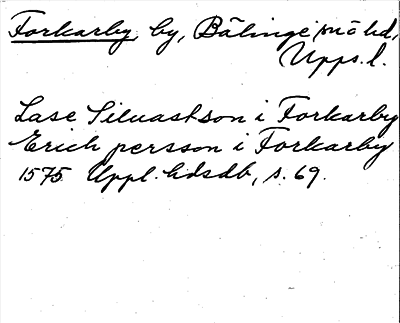 Forkarby by, Bälinge sn o hd,
Upps. l.
Lase Siluastson i Forkarby
Erich persson i Forkarby
1575 Uppl. hdsdb, s. 69.